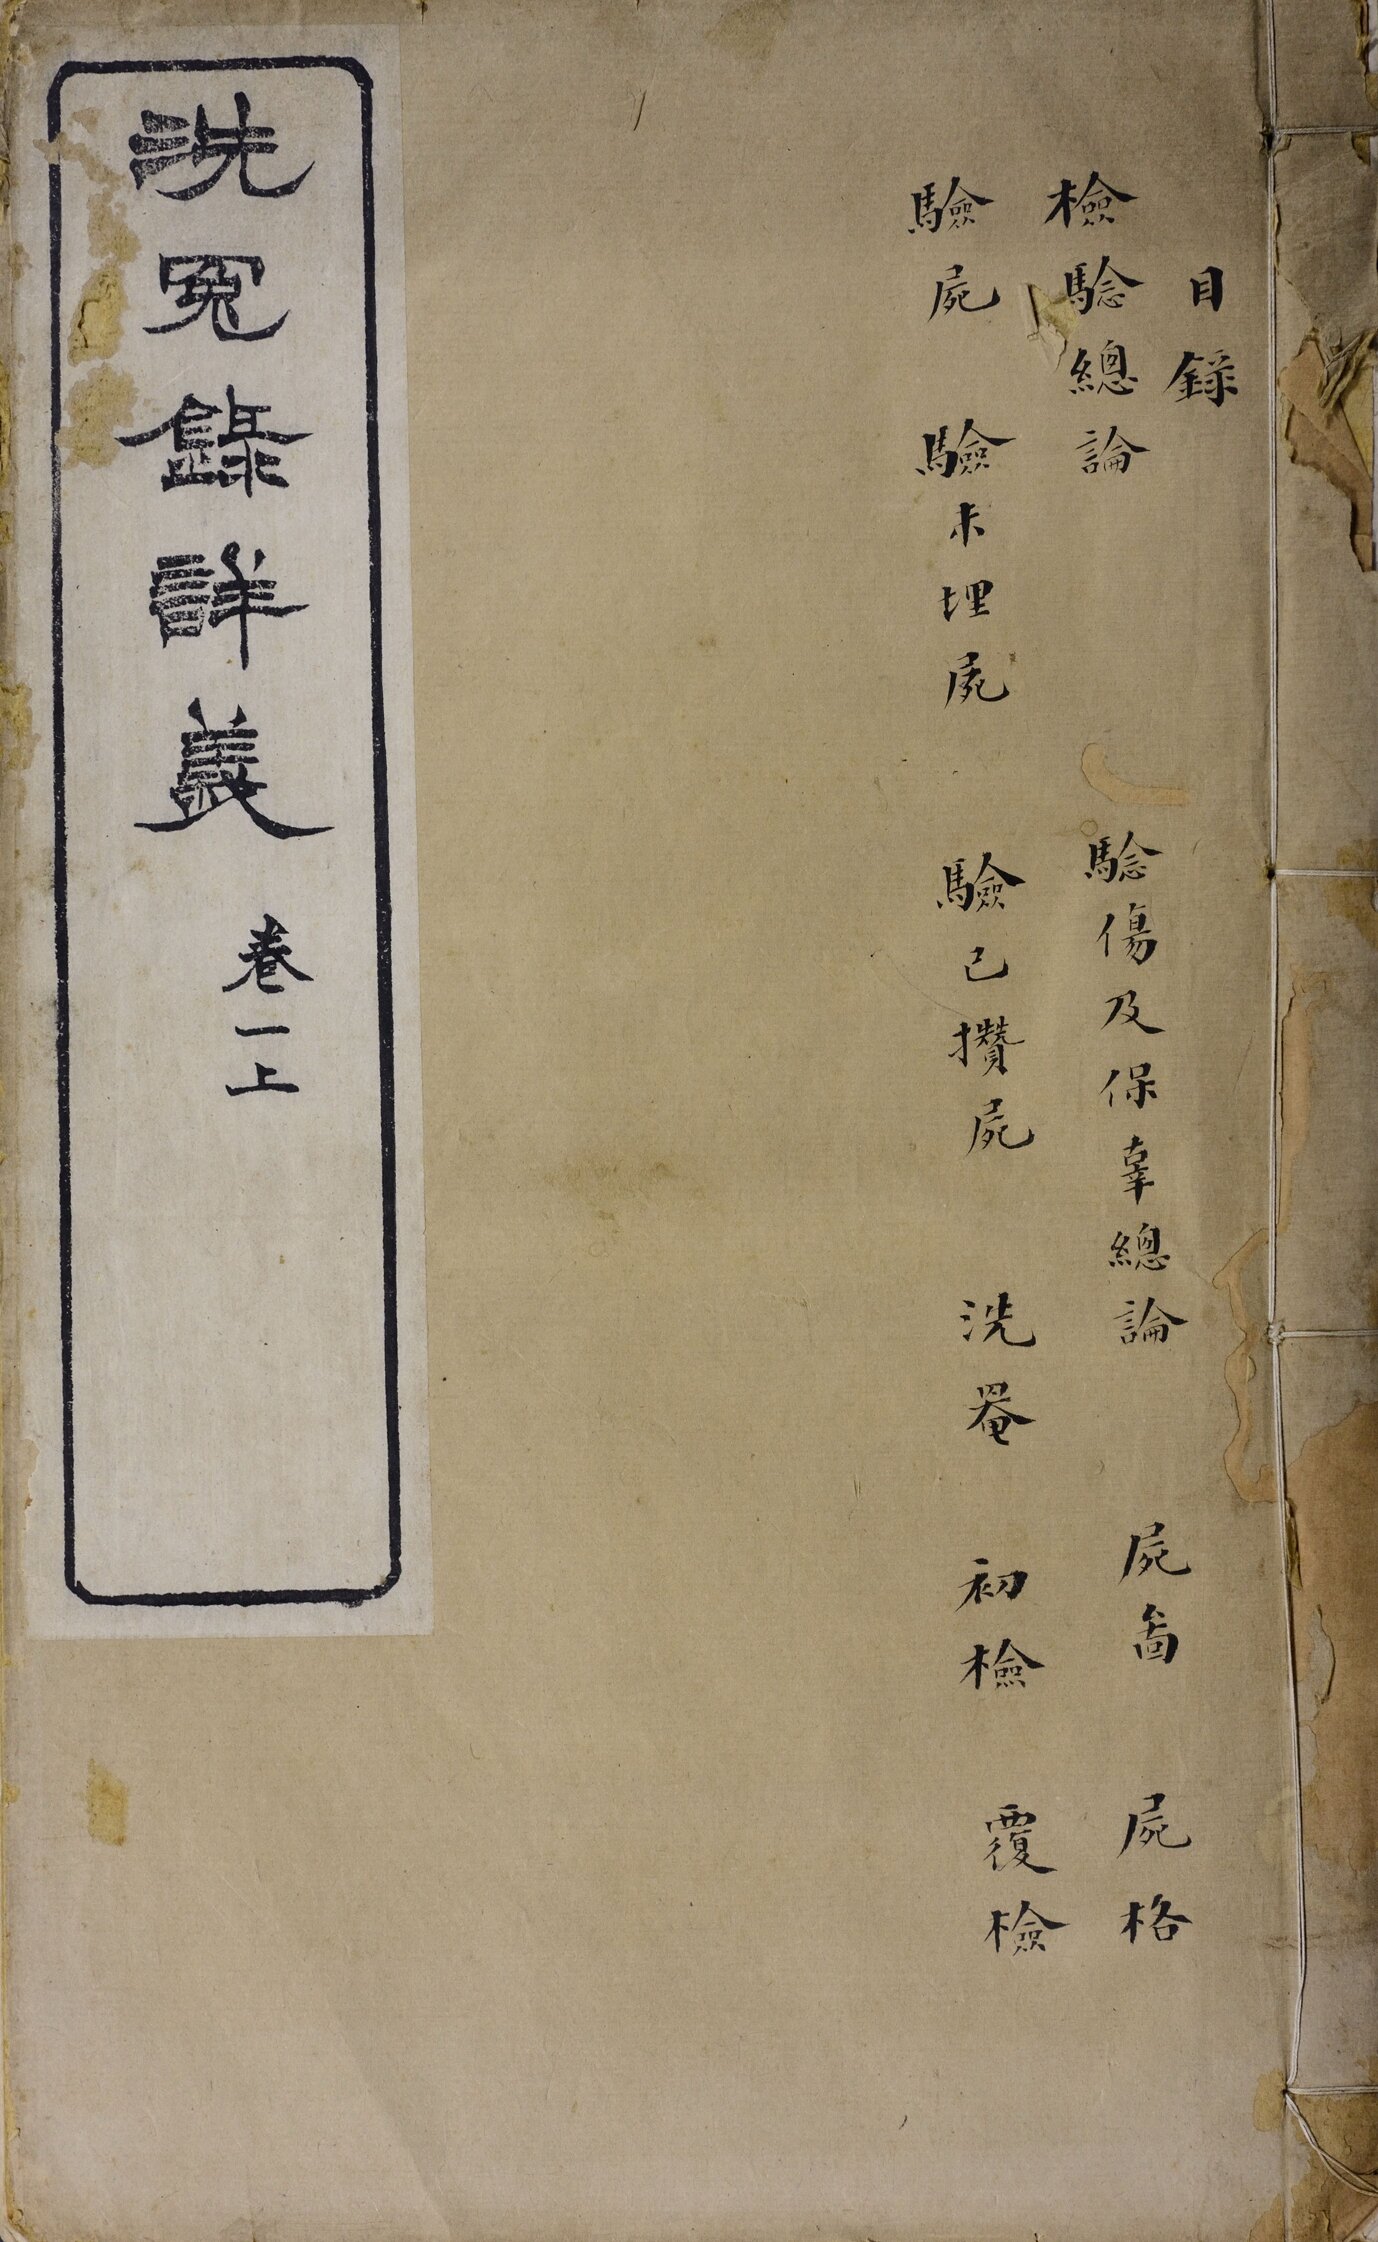 目錄
檢騐總論　騐傷及保辜總論　屍啚　屍格
驗屍　驗未埋屍　驗已攢屍　洗罨　初檢　覆檢
洗冤錄詳義
卷一上